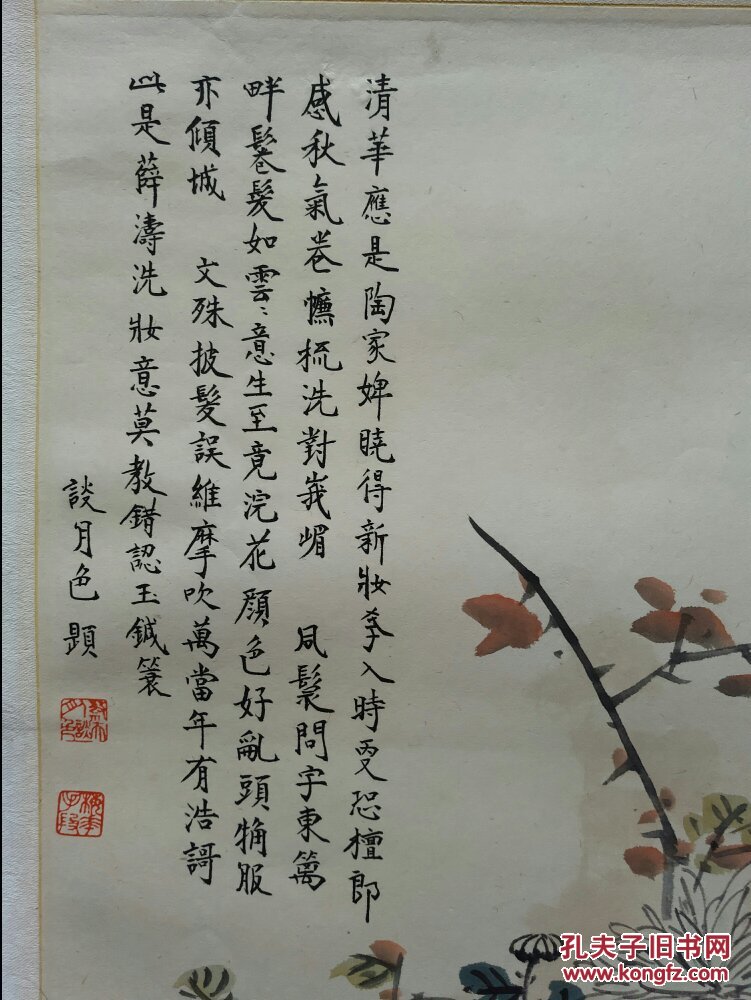 清華應是陶家婢曉得新妝李入時更恐檀郎
感秋氣卷幨梳洗對峩嵋 凨鬟問字東篱
畔鬈髮如雲〻意生至竟浣花顔色好亂頭觕服
亦傾城 文殊披髮誤維摩吹萬當年有浩謌
此是薛濤洗妝意莫教錯認玉鍼蓑
談月色題
孔夫子旧书网
www.kongfz.com